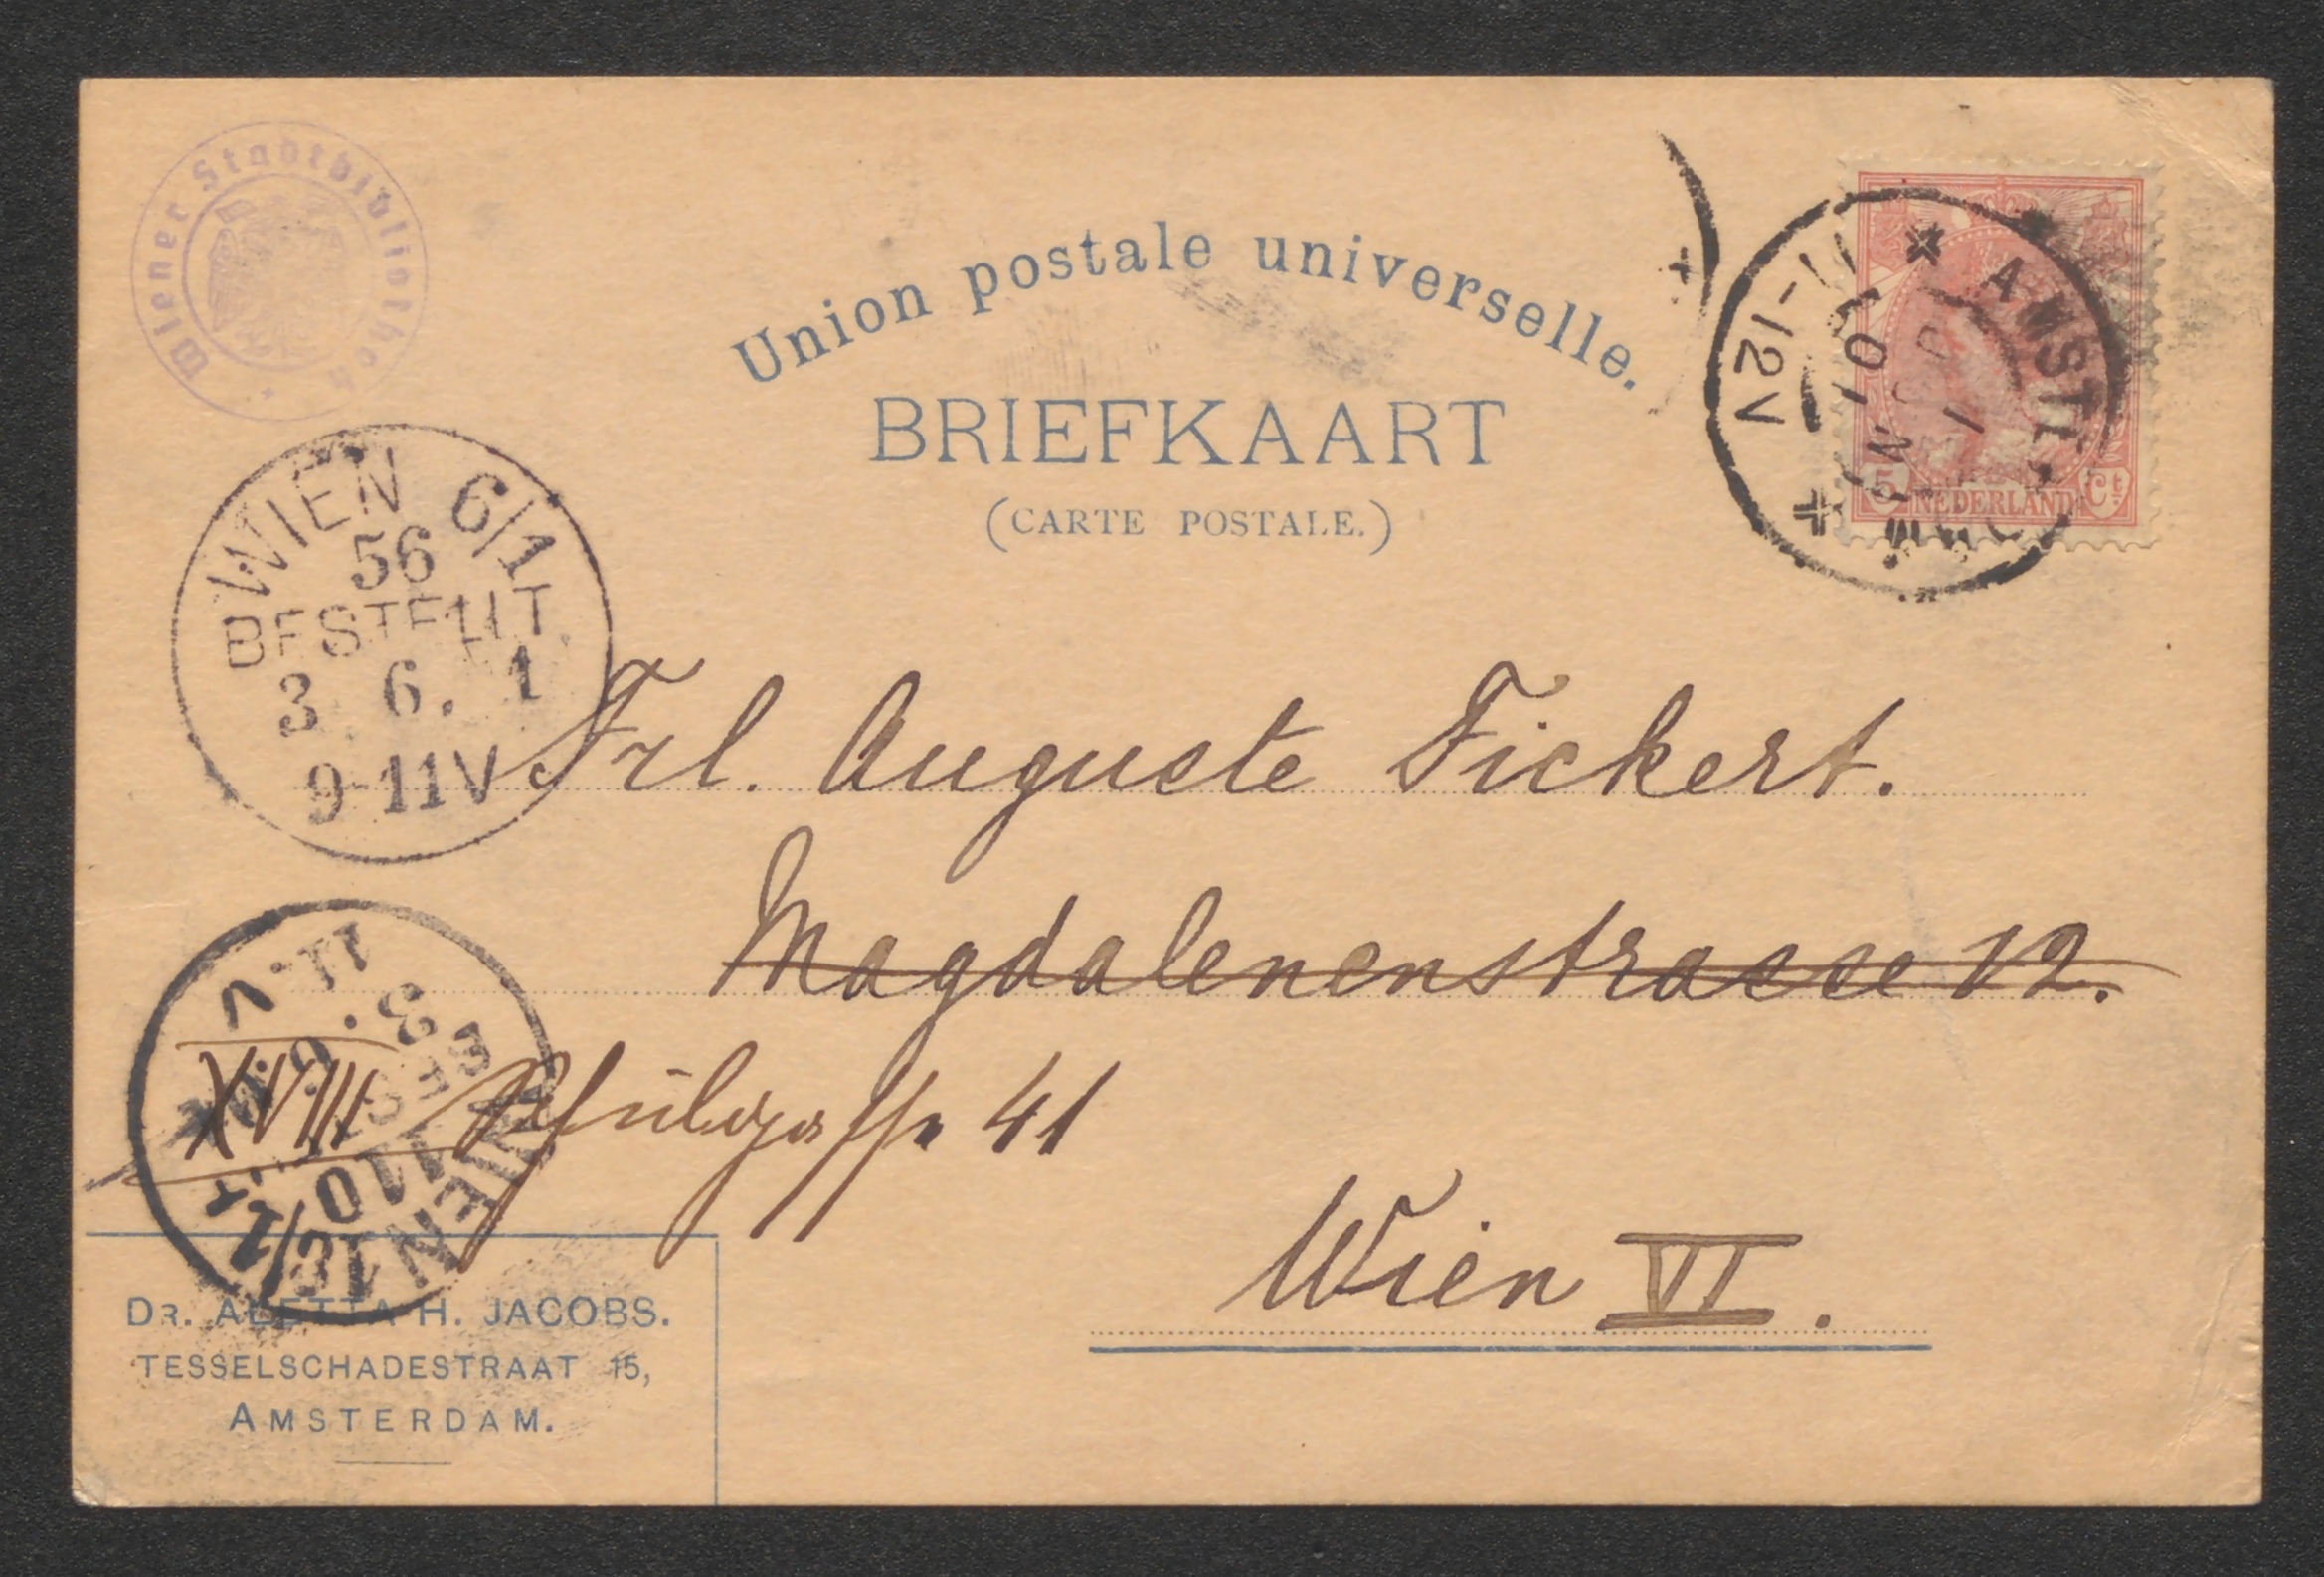 Wiener Stadtbibliothek
Union postale universelle.
BRIEFKAART
(CARTE POSTALE.)
AMST
1-12V
5 NEDERLAND Ct
WIEN 6/1
56
BESTELLT
3 6. 1
9-11V
Frl. Auguste Fickert.
Magdalenenstrasse 12.
XVIII 41
Wien VI.
II.V
3. 6.
110
WIEN 18/1
DR. ALETTA H. JACOBS.
TESSELSCHADESTRAAT 15,
AMSTERDAM.